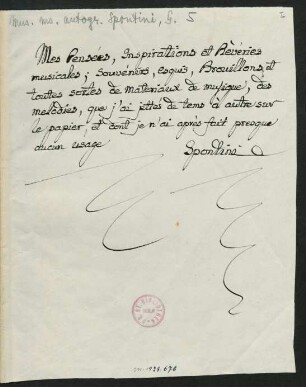 Mus. ms. autogr. Spontini, G. 5
Mes Pensées, Inspirations et Rêveries
musicales; souvenirs, esquis, Brouillons, et
toutes sortes de materiaux de musique, des
melodies, que j'ai jettés de tems à autre sur
le papier, et dont je n'ai après fait presque
aucun usage
Spontini